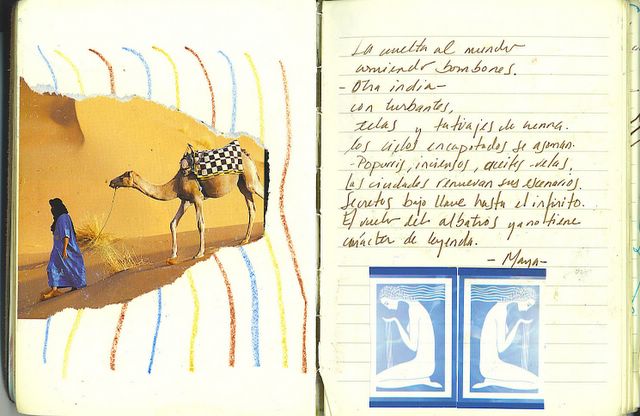 La vuelta al mundo
comiendo bombones.
- Otra india -
con turbantes,
telas y tatuajes de henna.
Los cielos encapotados se asoman.
- Popurris, inciensos, aceites - velas.
Las ciudades renuevan sus escenarios.
Secretos bajo llave hasta el infinito.
El vuelo del albatros ya no tiene
carácter de leyenda.
- Maya -